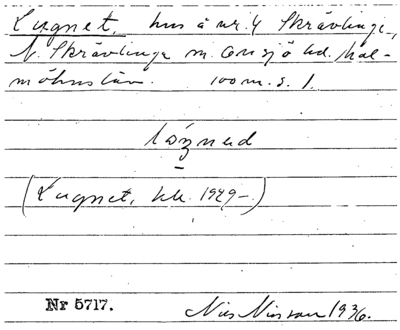 Lugnet, hus å nr. 4 Skrävlinge,
N. Skrävlinge sn. Onsjö hd. Mal-
möhus län. 100 m. s. 1.
(Lugnet, kk. 1929-)
Nr 5717. Nils Nilsson 1936.